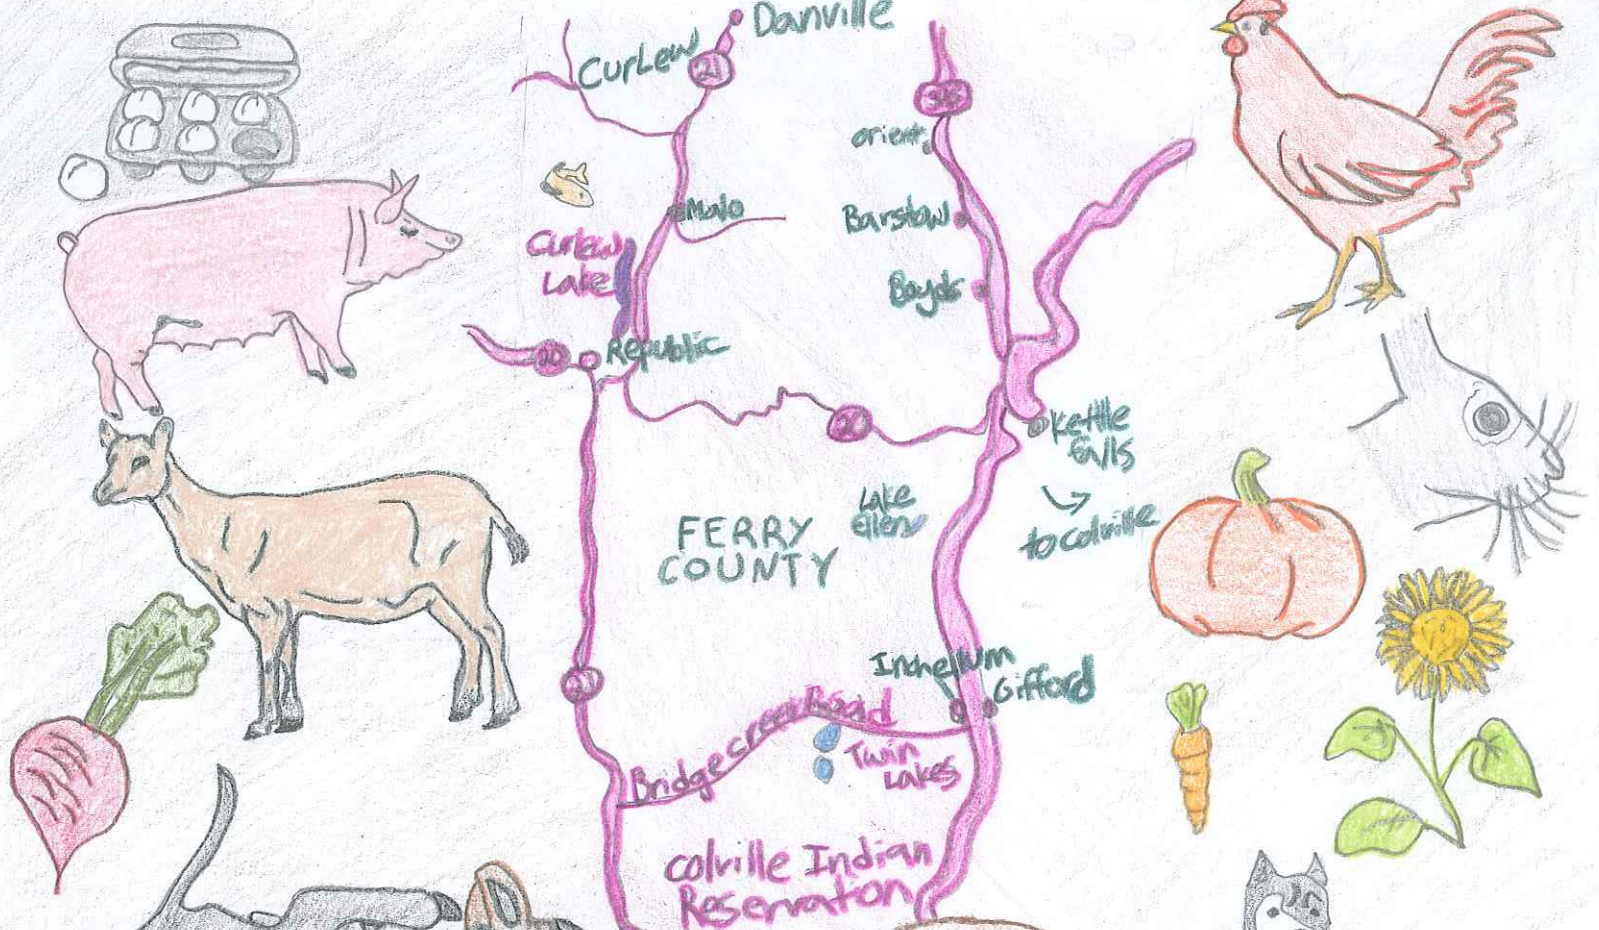 Danville
Curlew
21
395
orient
Malo
Barstow
Curlew
Lake
Boyds
20
Republic
20
Kettle
falls
to colville
Lake
Ellen
FERRY
COUNTY
21
Inchelium
Gifford
Bridge creek Road
Twin
Lakes
Colville Indian
Reservaton